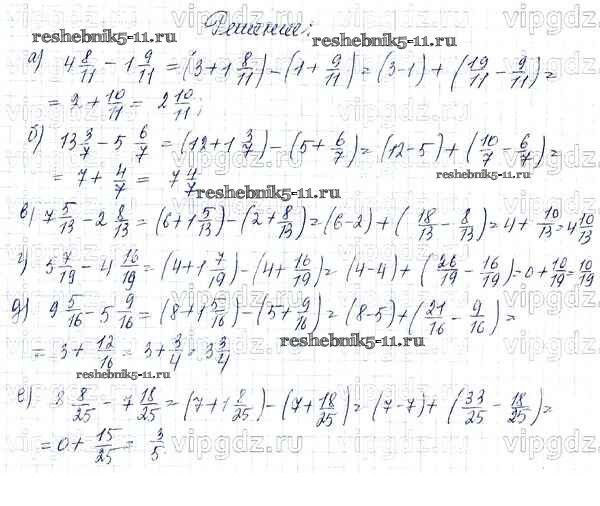 vipgdz.ru vipgdz.ru vipgdz.ru
Решение:
reshebnik5-11.ru reshebnik5-11.ru
а) 4 8/11 - 1 9/11 = (3 + 1 8/11) - (1 + 9/11) = (3-1) + (19/11 - 9/11) =
= 2 + 10/11 = 2 10/11;
б) 13 3/7 - 5 6/7 = (12 + 1 3/7) - (5 + 6/7) = (12-5) + (10/7 - 6/7) =
= 7 + 4/7 = 7 4/7
reshebnik5-11.ru
reshebnik5-11.ru
в) 7 5/13 - 2 8/13 = (6 + 1 5/13) - (2 + 8/13) = (6-2) + (18/13 - 8/13) = 4 + 10/13 = 4 10/13
г) 5 7/19 - 4 16/19 = (4 + 1 7/19) - (4 + 16/19) = (4-4) + (26/19 - 16/19) = 0 + 10/19 = 10/19
д) 9 5/16 - 5 9/16 = (8 + 1 5/16) - (5 + 9/16) = (8-5) + (21/16 - 9/16) =
= 3 + 12/16 = 3 + 3/4 = 3 3/4
reshebnik5-11.ru
reshebnik5-11.ru
е) 8 8/25 - 7 18/25 = (7 + 1 8/25) - (7 + 18/25) = (7-7) + (33/25 - 18/25) =
= 0 + 15/25 = 3/5
vipgdz.ru vipgdz.ru vipgdz.ru